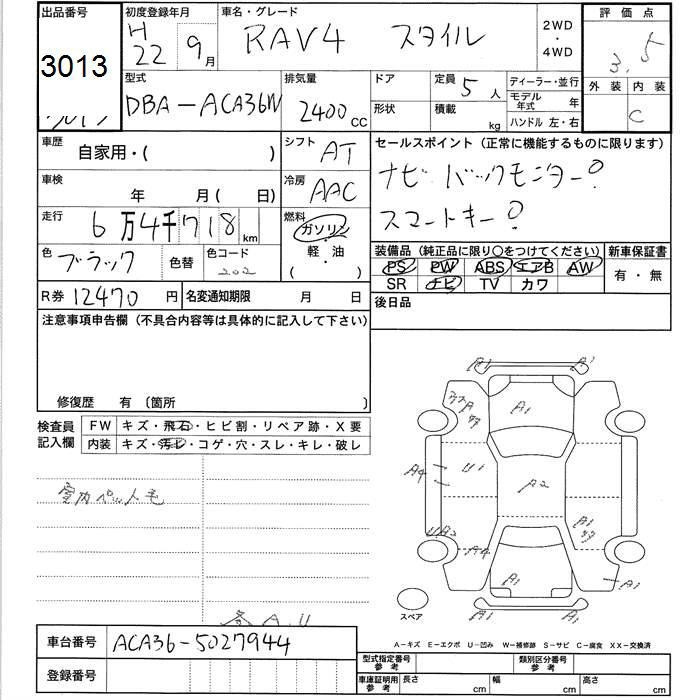 出品番号 初度登録年月 車名・グレード 2WD ・ 4WD 評価点
3013 H22 9月 RAV4 スタイル 3.5
外装 内装
C
型式 排気量 ドア 定員 5人 ディーラー・並行
DBA-ACA36W 2400cc 形状 積載 kg モデル年式 年
ハンドル 左・右
車歴 自家用・( ) シフト AT セールスポイント(正常に機能するものに限ります)
車検 年 月( 日) 冷房 AAC ナビ バックモニター
走行 6万4千718km 燃料 ガソリン・軽油( ) スマートキー
色 ブラック 色替 色コード 202
装備品(純正品に限り○をつけてください) 新車保証書
PS PW ABS エアB AW 有・無
SR ナビ TV カワ
R券 12470円 名変通知期限 月 日 後日品
注意事項申告欄(不具合内容等は具体的に記入して下さい)
修復歴 有〔箇所 〕
検査員記入欄 FW キズ・飛石・ヒビ割・リペア跡・X要
内装 キズ・汚レ・コゲ・穴・スレ・キレ・破レ
A1 A1
A1
A4 U1 A2
A1
UA2 A4
A1 A1
A1 A1
スペア
A-キズ E-エクボ U-凹み W-補修跡 S-サビ C-腐食 XX-交換済
車台番号 ACA36-5027944
登録番号
型式指定番号参考 類別区分番号参考
車庫証明用参考 長さ cm 幅 cm 高さ cm